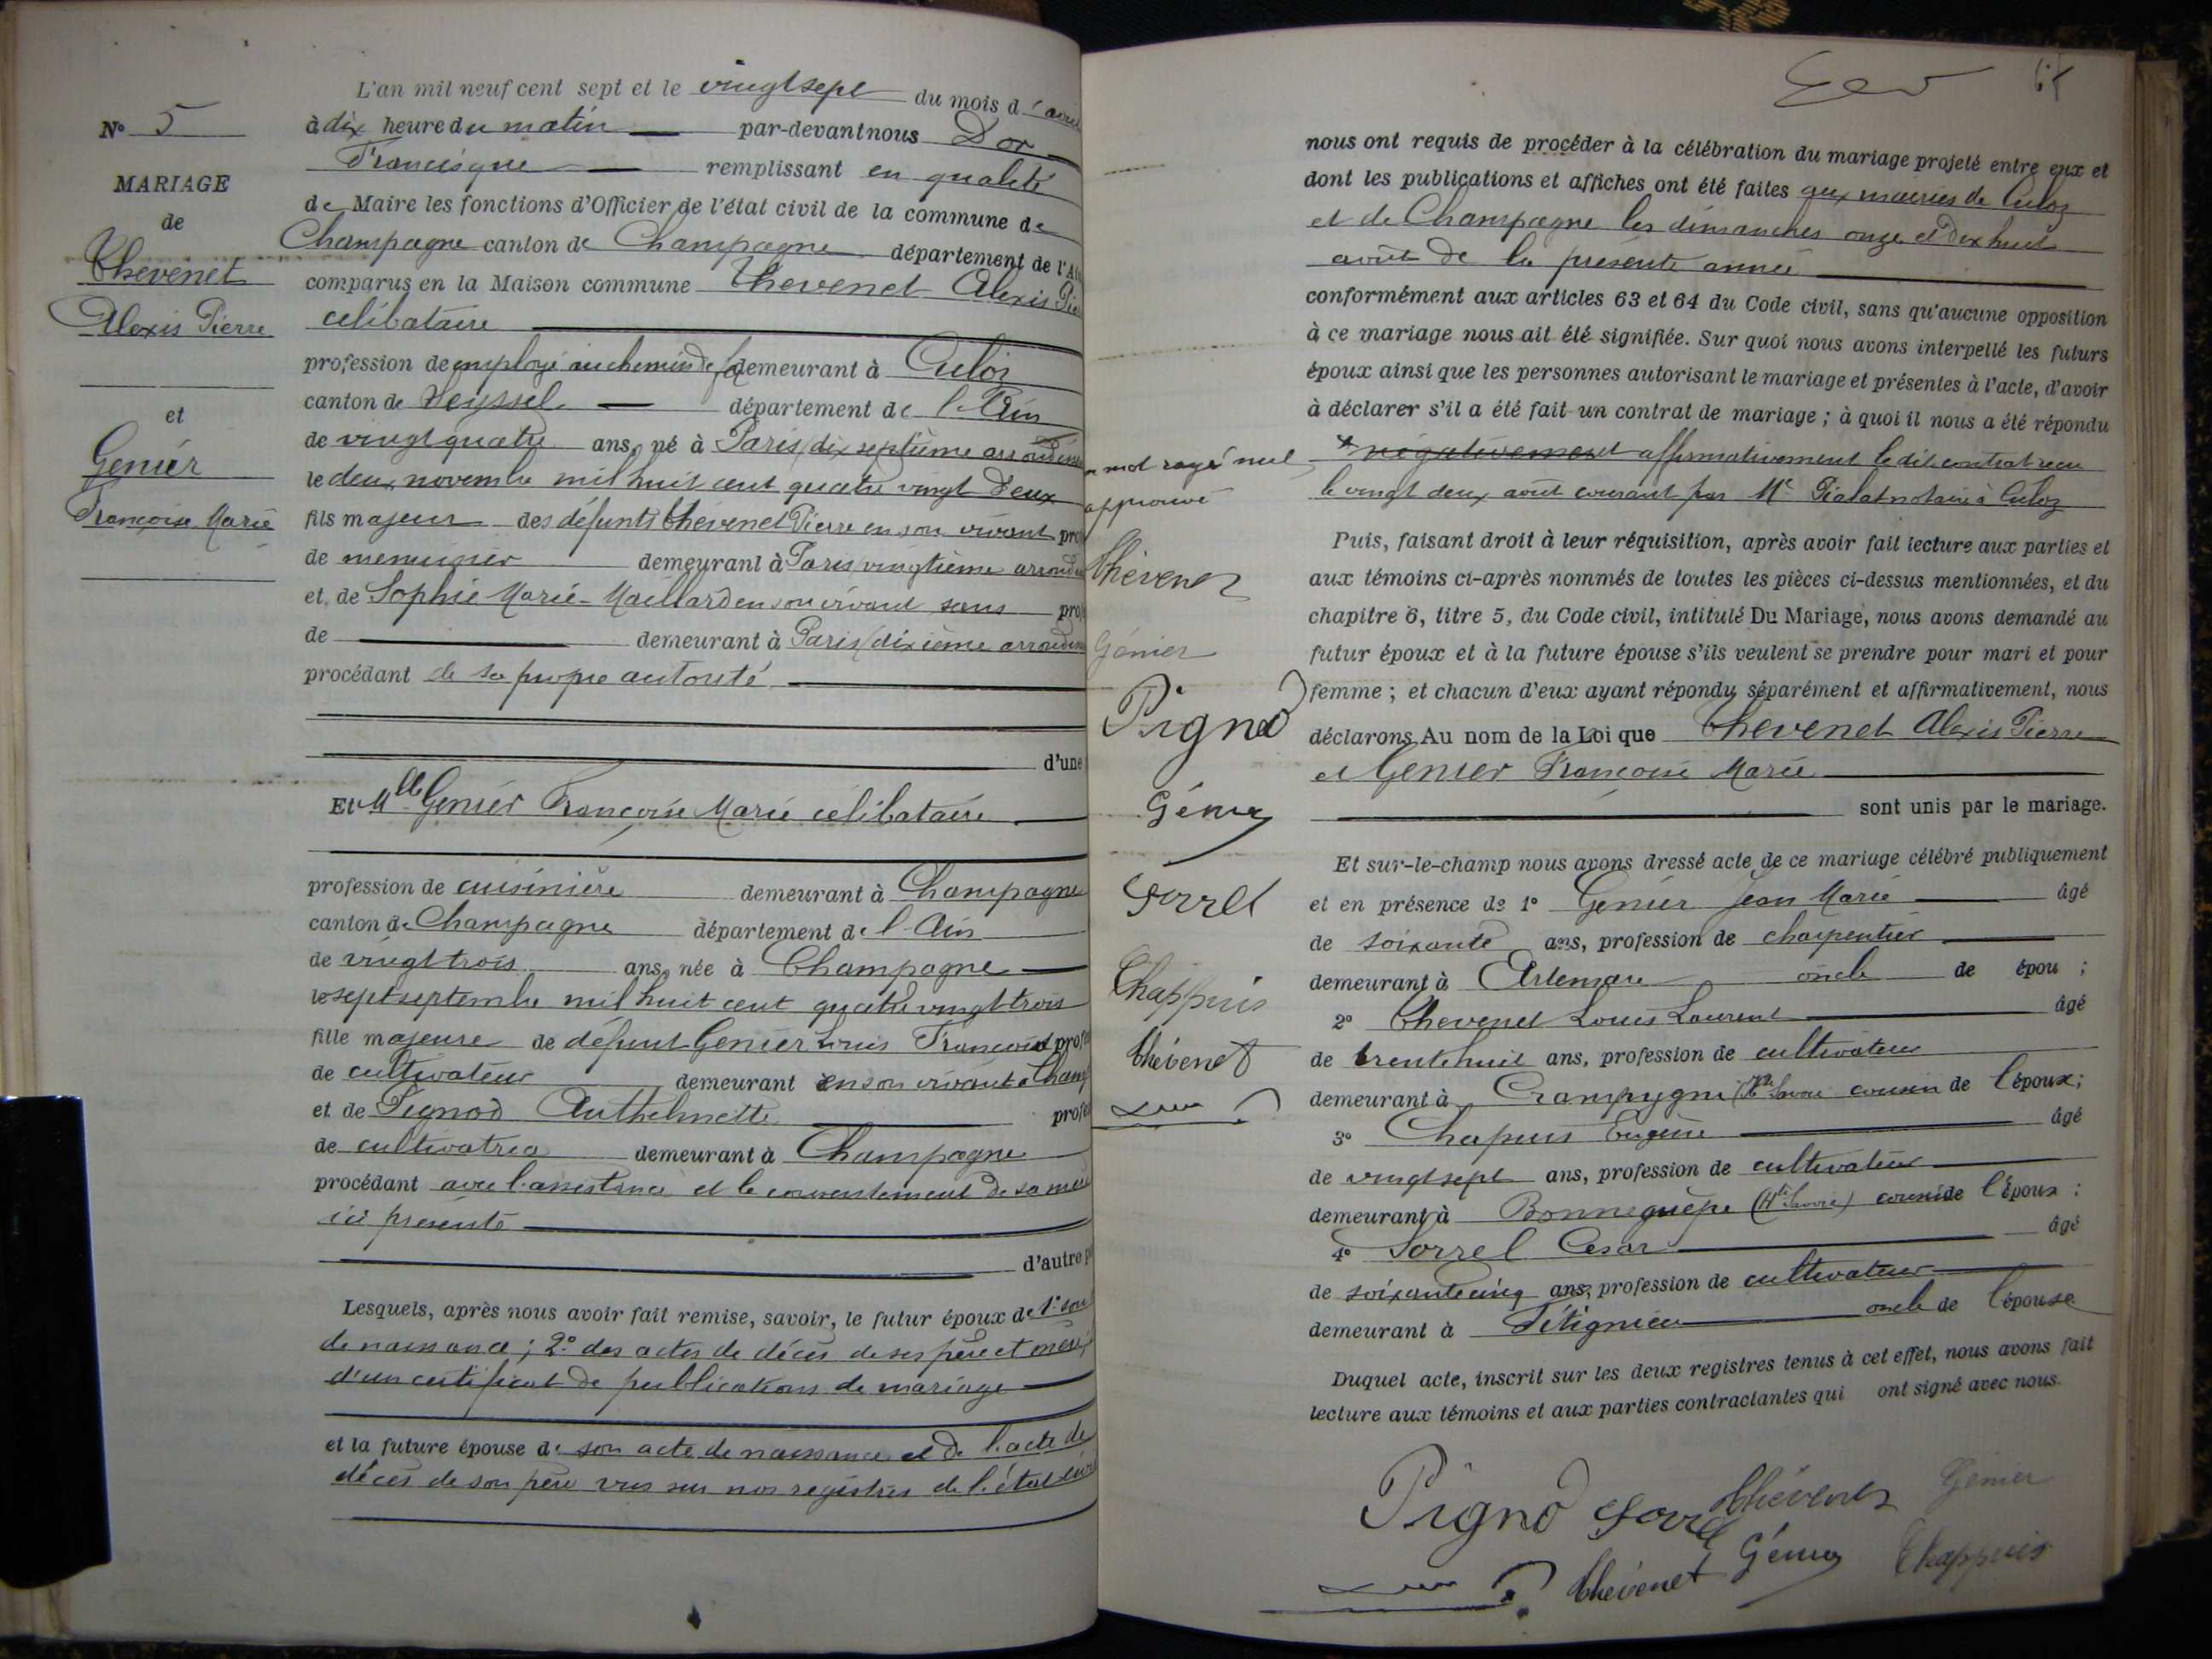 N° 5
MARIAGE
de
Thevenet
Alexis Pierre
et
Genier
Françoise Marie
L'an mil neuf cent sept et le vingt sept du mois d'
à dix heure du matin par-devant nous Dor
Francisque remplissant en qualité
de Maire les fonctions d'Officier de l'état civil de la commune de
Champagne canton de Champagne département de l'
comparus en la Maison commune Thevenet Alexis
célibataire
profession de employé au chemin de f demeurant à Culoz
canton de Seyssel département de l'Ain
de vingt quatre ans, né à Paris (dix septième
le deux novembre mil huit cent quatre vingt deux
fils majeur des défunts Thevenet Pierre en son vivant
de menuisier demeurant à Paris vingtième
et de Sophie Marie Maillard en son vivant sans
de demeurant à Paris (dixième
procédant de sa propre autorité
d'une
Et Mlle Genier Françoise Marie célibataire
profession de cuisinière demeurant à Champagne
canton de Champagne département de l'Ain
de vingt trois ans, née à Champagne
le sept septembre mil huit cent quatre vingt trois
fille majeure de défunt Genier Louis François
de cultivateur demeurant en son vivant à
et de Pignod Anthelmette
de cultivatrice demeurant à Champagne
procédant avec l'assistance et le consentement de sa mère
ici présente
d'autre
Lesquels, après nous avoir fait remise, savoir, le futur époux de 1° son
de naissance; 2° des actes de décès de ses père et mère;
d'un certificat de publications de mariage
et la future épouse de son acte de naissance et de l'acte de
décès de son père vus sur nos registres de l'état
nous ont requis de procéder à la célébration du mariage projeté entre eux et
dont les publications et affiches ont été faites aux mairies de Culoz
et de Champagne les dimanches onze et dix huit
août de la présente année
conformément aux articles 63 et 64 du Code civil, sans qu'aucune opposition
à ce mariage nous ait été signifiée. Sur quoi nous avons interpellé les futurs
époux ainsi que les personnes autorisant le mariage et présentes à l'acte, d'avoir
à déclarer s'il a été fait un contrat de mariage ; à quoi il nous a été répondu
négativement affirmativement le dit contrat reçu
le vingt deux août courant par Me Pialat notaire à Culoz
mot rayé nul
approuvé
Thévenet
Génier
Pignod
Génier
Sorrel
Chappuis
Thévenet
Puis, faisant droit à leur réquisition, après avoir fait lecture aux parties et
aux témoins ci-après nommés de toutes les pièces ci-dessus mentionnées, et du
chapitre 6, titre 5, du Code civil, intitulé Du Mariage, nous avons demandé au
futur époux et à la future épouse s'ils veulent se prendre pour mari et pour
femme ; et chacun d'eux ayant répondu séparément et affirmativement, nous
déclarons Au nom de la Loi que Thevenet Alexis Pierre
et Genier Françoise Marie
sont unis par le mariage.
Et sur-le-champ nous avons dressé acte de ce mariage célébré publiquement
et en présence de 1° Genier Jean Marie âgé
de soixante ans, profession de charpentier
demeurant à Artemare oncle de épou ;
2° Thevenet Louis Laurent âgé
de trente huit ans, profession de cultivateur
demeurant à (Hte Savoie cousin de l'époux;
3° Chapuis Eugène âgé
de vingt sept ans, profession de cultivateur
demeurant à Bonneguête (Hte Savoie) cousin de l'époux ;
4° Sorrel Cesar âgé
de soixante cinq ans, profession de cultivateur
demeurant à oncle de l'épouse
Duquel acte, inscrit sur les deux registres tenus à cet effet, nous avons fait
lecture aux témoins et aux parties contractantes qui ont signé avec nous.
Pignod Sorrel Thévenet Génier
Thévenet Génier Chappuis